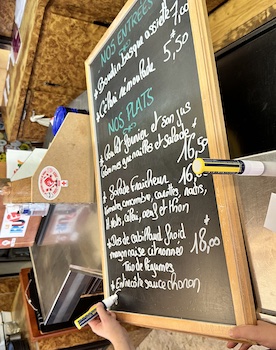 NOS ENTRÉES
* Boudin basque assiette 7,00
* Céleri rémoulade 5,50
NOS PLATS
* Poulet fermier et son jus
Pommes grenailles et salade 16,50
* Salade Fraîcheur 16,
Tomates, concombre, carottes, radis,
céleri, oeuf et thon
* Dos de cabillaud froid 18,00
mayonnaise citronnée
Trio de légumes
* Entrecôte sauce choron